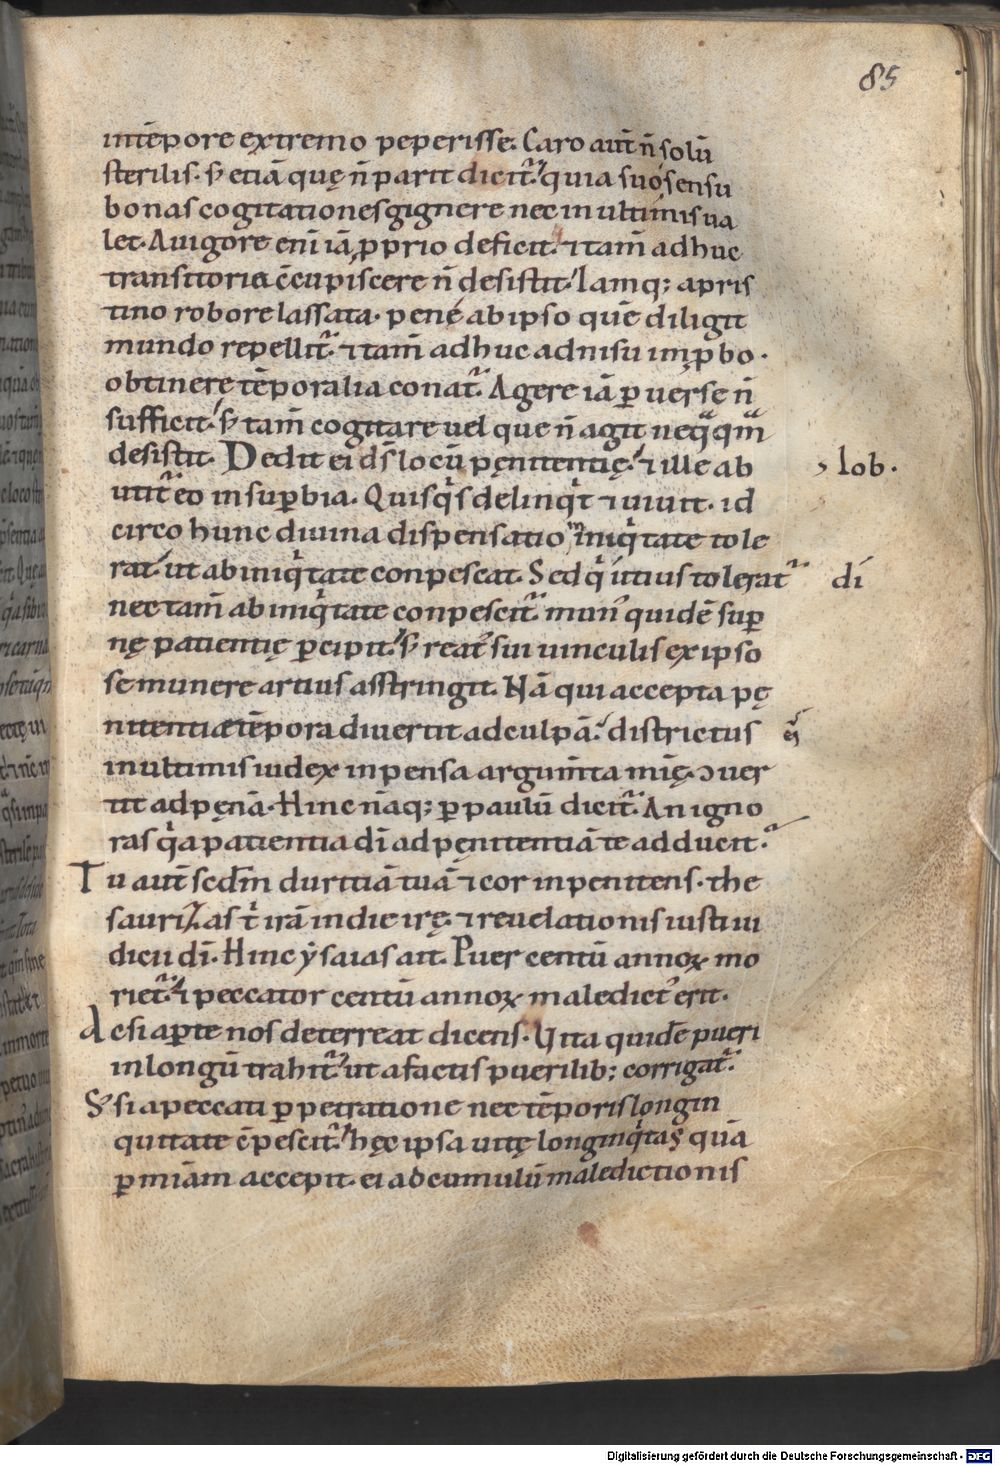 85
intēpore extremo peperisse. Caro aut̄ n̄ solū
sterilis. s; etiā quę n̄ parit dicit̃ quia suo sensu
bonas cogitationes gignere nec in ultimis ua
let. A uigore eni iā ꝓprio deficit. ⁊ tam̄ adhuc
transitoria c̄cupiscere n̄ desistit. Iamq; apris
tino robore lassata. pene ab ipso quē diligit
mundo repellit̃. ⁊ tam̄ adhuc adnisu imꝓbo.
obtinere tēporalia conat̃. Agere iā ꝑuerse n̄
sufficit. s; tam̄ cogitare uel que n̄ agit neq̄q̄m
desistit. Dedit ei ds̄ locū pęnitentię. ⁊ ille ab
utit̃ eo insuꝑbia. Quisqͥs delinqͥt ⁊ uiuit. id
Iob.
circo hunc diuina dispensatio in iniqͥtate tole
rat. ut ab iniqͥtate conpescat. Sed qͥ itius tolerat̃
di
nec tam̄ ab iniqͥtate conpescit̃. mun᾿ quidē suꝑ
nę patientię ꝑcipit. s; reat᾿ sui uinculis ex ipso
se munere artius asstringit. Nā qui accepta pę
nitentiae tēpora diuertit ad culpā. districtus
in ultimis iudex inpensa argum̄ta mię. ↄuer
tit ad pęnā. Hinc nāq; ꝑ paulū dicit̃. An igno
ras qͥa patientia dī ad pęnitentiā te adducit.
Tu aut̄ sedm̄ duritiā tuā ⁊ cor inpenitens. the
saurizas t᷑ irā in die irę. ⁊ reuelationis iusti iu
dicii dī. Hinc ẏsaias ait. Puer centū annoꝝ mo
riet̃. ⁊ peccator centū annoꝝ maledict᾿ erit.
Ac si aꝑte nos deterreat dicens. Uita quidē pueri
in longū trahit̃ ut a factis puerilib; corrigat̃.
S; si a peccati ꝑpetratione nec tēporis longin
quitate c̄pescit̃. hęc ipsa uitę longinqͥtas quā
ꝑ miām accepit. ei ad cumulū maledictionis
Digitalisierung gefördert durch die Deutsche Forschungsgemeinschaft - DFG